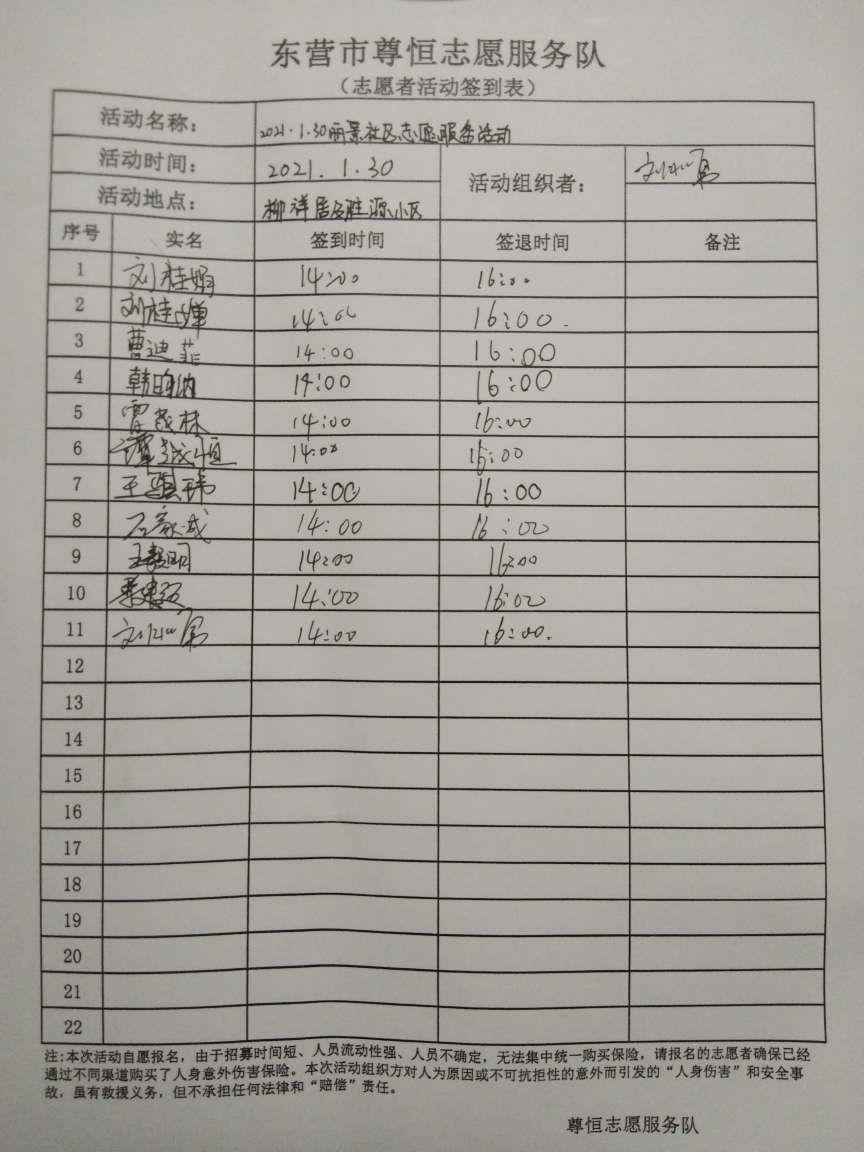 东营市尊恒志愿服务队
（志愿者活动签到表）
活动名称： 2021.1.30丽景社区志愿服务活动
活动时间： 2021.1.30 活动组织者：
活动地点： 柳祥居及胜源小区
序号 实名 签到时间 签退时间 备注
1 刘桂娟 14:00 16:00
2 刘桂婵 14:00 16:00.
3 曹迪菲 14:00 16:00
4 14:00 16:00
5 林 14:00 16:00
6 谭越恒 14:00 16:00
7 王骐玮 14:00 16:00
8 石家诚 14:00 16:00
9 明 14:00 16:00
10 14:00 16:00
11 14:00 16:00.
12
13
14
15
16
17
18
19
20
21
22
注:本次活动自愿报名，由于招募时间短、人员流动性强、人员不确定，无法集中统一购买保险，请报名的志愿者确保已经
通过不同渠道购买了人身意外伤害保险。本次活动组织方对人为原因或不可抗拒性的意外而引发的“人身伤害”和安全事
故，虽有救援义务，但不承担任何法律和“赔偿”责任。
尊恒志愿服务队